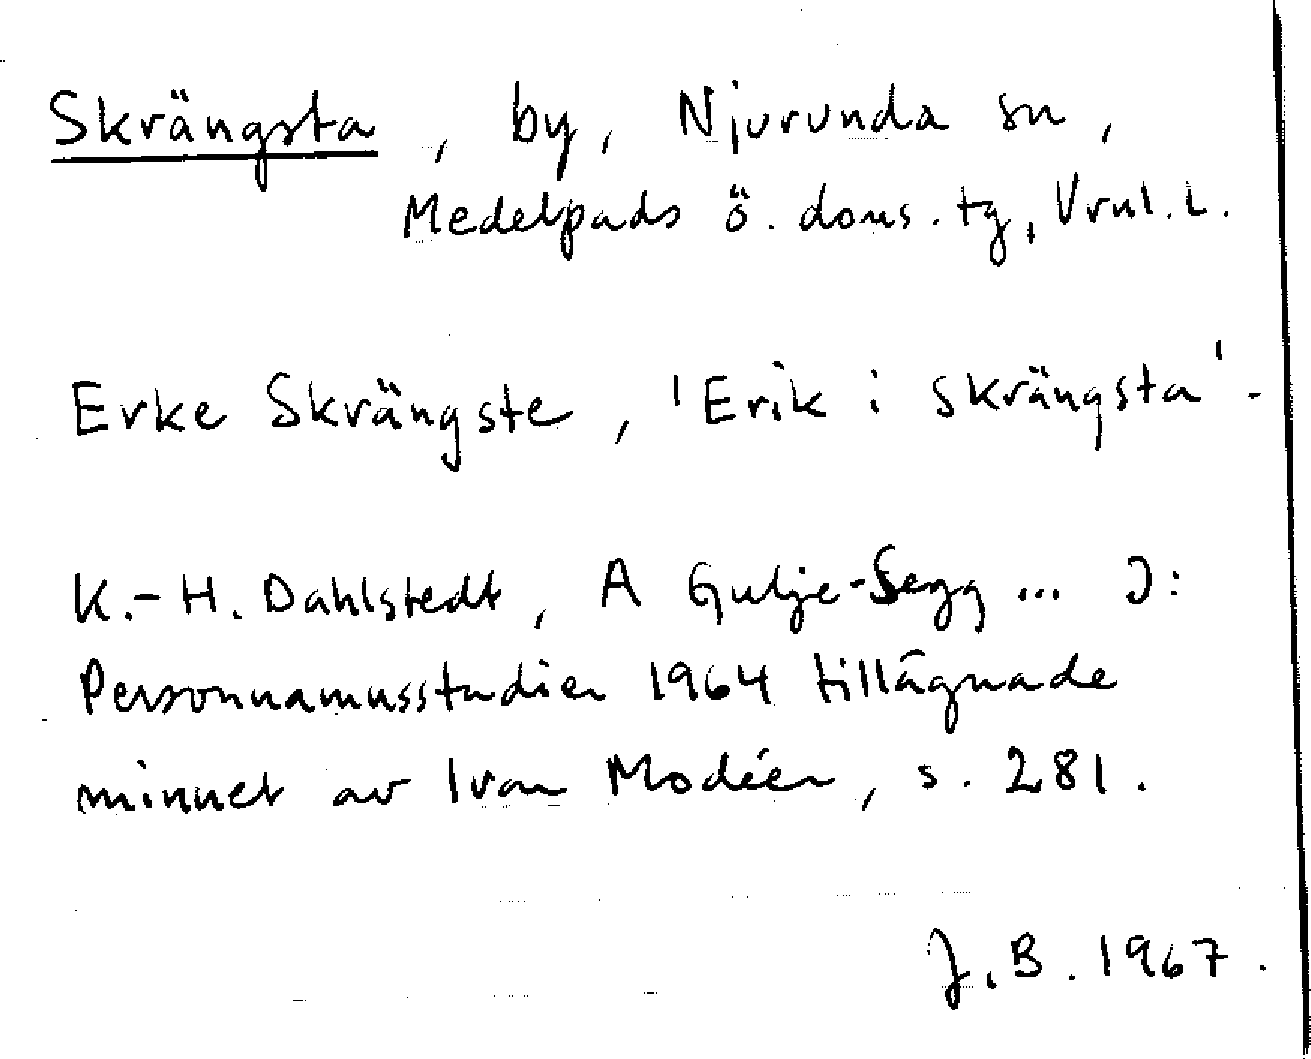 Skrängsta, by, Njurunda sn,
Medelpads ö. doms. tg, Vrnl. L.
Erke Skrängste, 'Erik i Skrängsta'.
K.-H. Dahlstedt, A Gulje-Segg... I:
Personnamnsstudier 1964 tillägnade
minnet av Ivar Modéer, s. 281.
J.B. 1967.